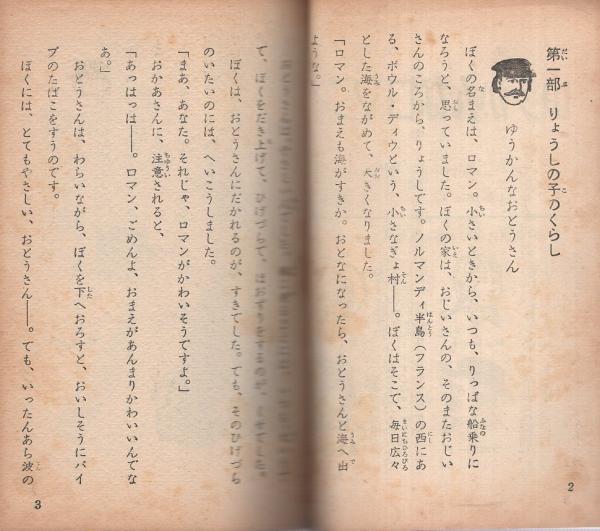 第一部 りょうしの子のくらし
ゆうかんなおとうさん
ぼくの名まえは、ロマン。小さいときから、いつも、りっぱな船乗りに
なろうと、思っていました。ぼくの家は、おじいさんの、そのまたおじい
さんのころから、りょうしです。ノルマンディ半島(フランス)の西にあ
る、ボウル・ディウという、小さなぎょ村――。ぼくはそこで、毎日広々
とした海をながめて、大きくなりました。
「ロマン。おまえも海がすきか。おとなになったら、おとうさんと海へ出
ような。」
て、ぼくをだき上げて、ひげづらで、ほおずりをするのが、くせでした。
ぼくは、おとうさんにだかれるのが、すきでした。でも、そのひげづら
のいたいのには、へいこうしました。
「まあ、あなた。それじゃ、ロマンがかわいそうですよ。」
おかあさんに、注意されると、
「あっはっは――。ロマン、ごめんよ、おまえがあんまりかわいいんでな
あ。」
おとうさんは、わらいながら、ぼくを下へおろすと、おいしそうにパイ
プのたばこをすうのです。
ぼくには、とてもやさしい、おとうさん――。でも、いったんあら波の
2
3